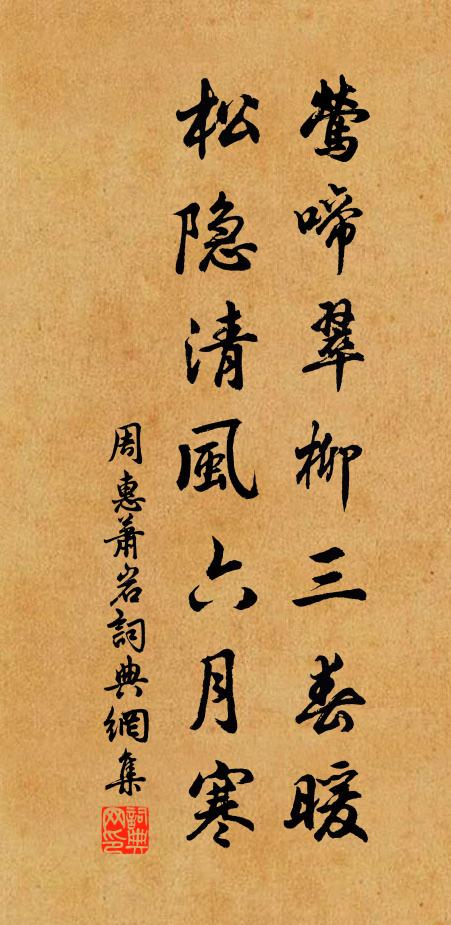 鶯啼翠柳三春暖
松隐清風六月寒
周惠蕭岩詞典網集
詞典网印